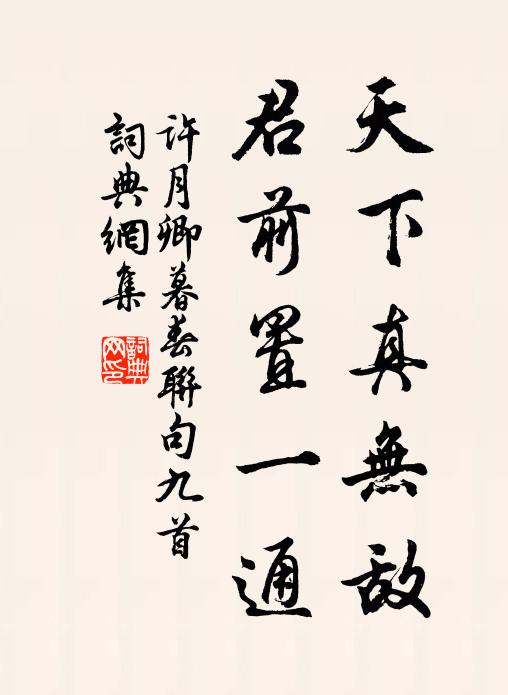 天下真無敵
君前置一通
許月卿暮春聯句九首
詞典網集
詞典
网印